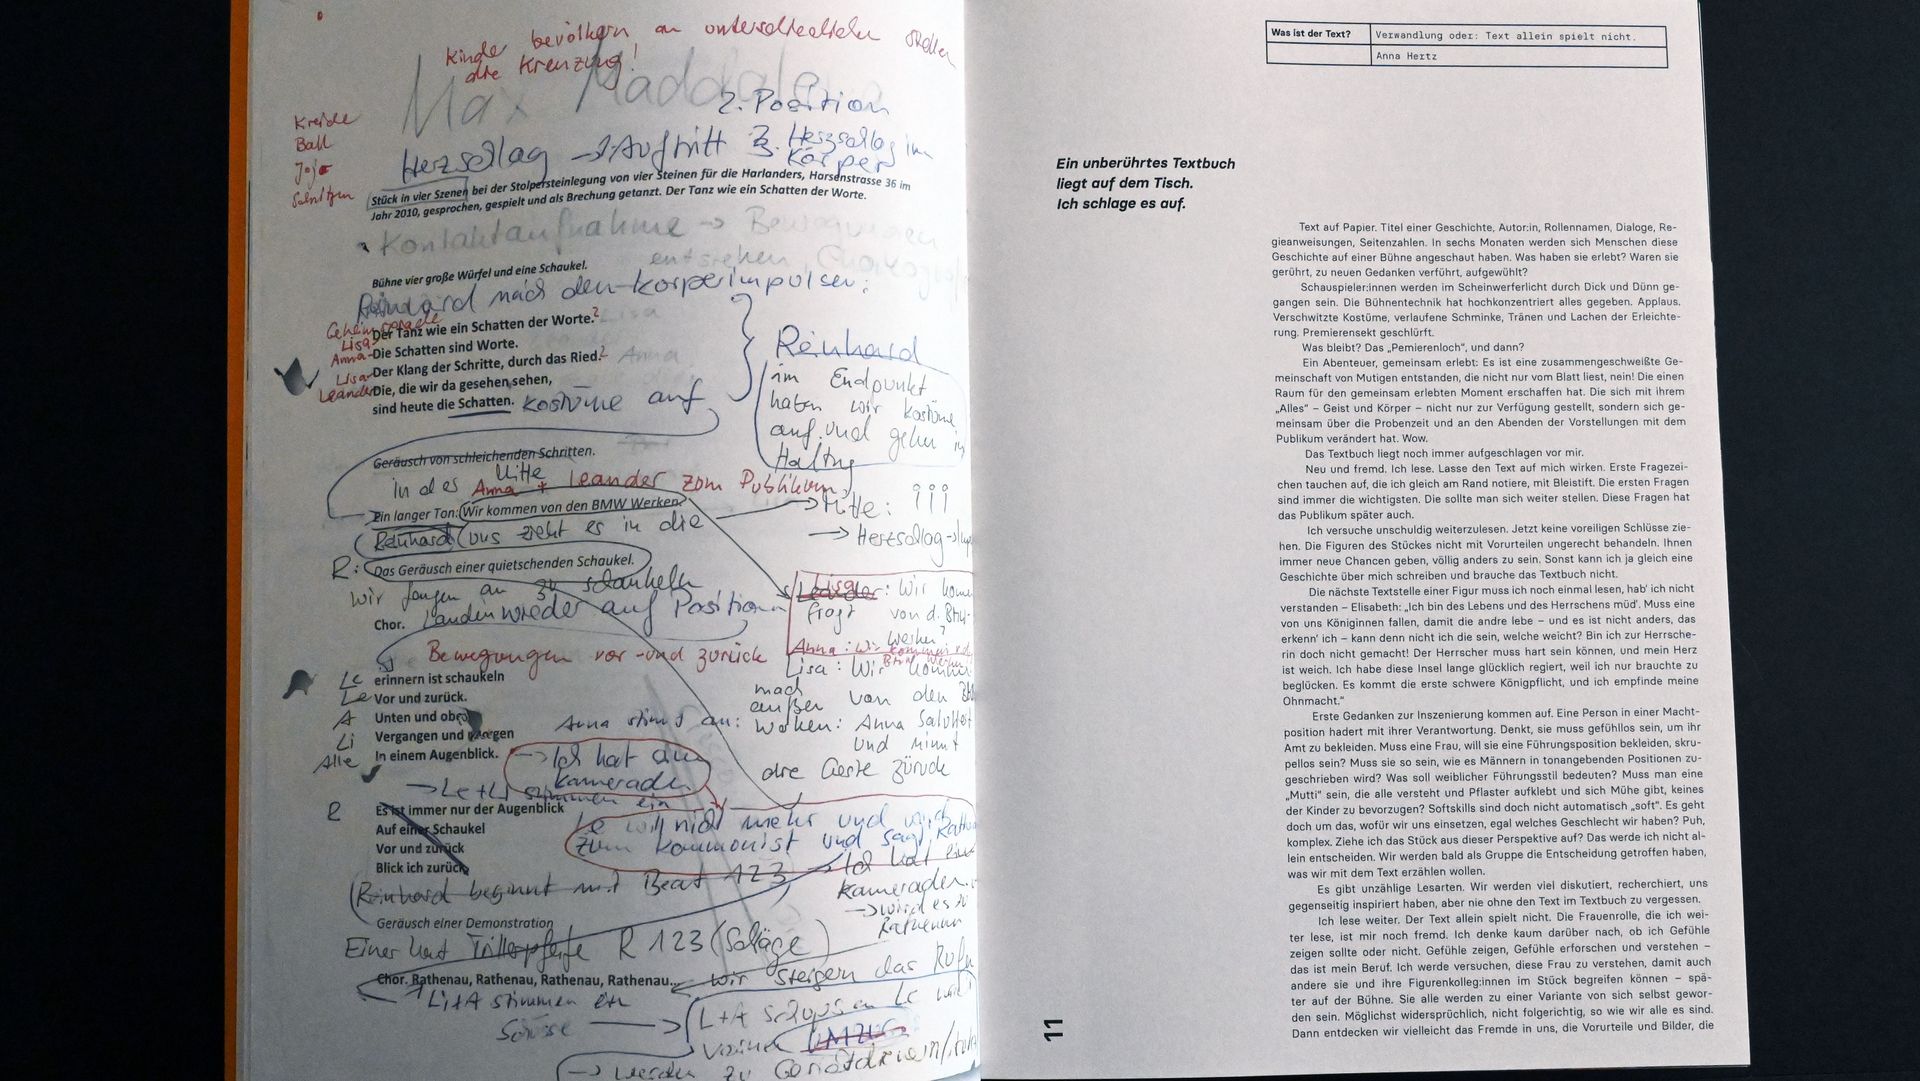 Kinder bevölkern an unterschiedlichen Stellen
die Kreuzung!
Max Maddalena
2. Position
Kreide
Ball
Jojo
Herzschlag → 1. Auftritt 3. Herzschlag im
Körper
Stück in vier Szenen bei der Stolpersteinlegung von vier Steinen für die Harlanders, Harsenstrasse 36 im
Jahr 2010, gesprochen, gespielt und als Brechung getanzt. Der Tanz wie ein Schatten der Worte.
Kontaktaufnahme → Bewegungen
entstehen,
Bühne vier große Würfel und eine Schaukel.
Reinhard nach den Körperimpulsen:
Geheimsprache
Der Tanz wie ein Schatten der Worte.
Lisa
Anna Die Schatten sind Worte.
Lisa Der Klang der Schritte, durch das Ried.
Leander Die, die wir da gesehen sehen,
sind heute die Schatten. Kostüme auf
Reinhard
im Endpunkt
haben wir Kostüme
auf und gehen in
Haltung
Geräusch von schleichenden Schritten.
Mitte
in des Anna + Leander zum Publikum
Ein langer Ton: Wir kommen von den BMW Werken.
Mitte:
Reinhard uns zieht es in die
→ Herzschlag
R: Das Geräusch einer quietschenden Schaukel.
Wir fangen an zu schaukeln
Chor. Landen wieder auf Position
Lisa
Leander: Wir
fragt von d. BMW-
Werken?
Anna: Wir kommen
Bewegungen vor- und zurück
Lisa: Wir kommen
Le erinnern ist schaukeln
Le Vor und zurück.
A Unten und oben
Li Vergangen und morgen
Alle In einem Augenblick.
Anna stimmt an:
von den
Werken: Anna salutiert
und nimmt
die Geste zurück
→ Ich hat ein
Kameraden
→ Le + Li stimmen ein
R Es ist immer nur der Augenblick
Auf einer Schaukel
Vor und zurück
Blick ich zurück
Le will nicht mehr und wird
zum Kommunist und sagt
Reinhard beginnt mit Beat 123
→ Ich hat
Kameraden
→ wird es zu
Rathenau
Geräusch einer Demonstration
Einer hat Trillerpfeife R 123 (Schläge)
Chor. Rathenau, Rathenau, Rathenau, Rathenau... Wir steigern das Rufen
Li+A stimmen ein
→ werden zu
Was ist der Text? Verwandlung oder: Text allein spielt nicht.
Anna Hertz
Ein unberührtes Textbuch
liegt auf dem Tisch.
Ich schlage es auf.
Text auf Papier. Titel einer Geschichte, Autor:in, Rollennamen, Dialoge, Re-
gieanweisungen, Seitenzahlen. In sechs Monaten werden sich Menschen diese
Geschichte auf einer Bühne angeschaut haben. Was haben sie erlebt? Waren sie
gerührt, zu neuen Gedanken verführt, aufgewühlt?
Schauspieler:innen werden im Scheinwerferlicht durch Dick und Dünn ge-
gangen sein. Die Bühnentechnik hat hochkonzentriert alles gegeben. Applaus.
Verschwitzte Kostüme, verlaufene Schminke, Tränen und Lachen der Erleichte-
rung. Premierensekt geschlürft.
Was bleibt? Das „Pemierenloch“, und dann?
Ein Abenteuer, gemeinsam erlebt: Es ist eine zusammengeschweißte Ge-
meinschaft von Mutigen entstanden, die nicht nur vom Blatt liest, nein! Die einen
Raum für den gemeinsam erlebten Moment erschaffen hat. Die sich mit ihrem
„Alles“ – Geist und Körper – nicht nur zur Verfügung gestellt, sondern sich ge-
meinsam über die Probenzeit und an den Abenden der Vorstellungen mit dem
Publikum verändert hat. Wow.
Das Textbuch liegt noch immer aufgeschlagen vor mir.
Neu und fremd. Ich lese. Lasse den Text auf mich wirken. Erste Fragezei-
chen tauchen auf, die ich gleich am Rand notiere, mit Bleistift. Die ersten Fragen
sind immer die wichtigsten. Die sollte man sich weiter stellen. Diese Fragen hat
das Publikum später auch.
Ich versuche unschuldig weiterzulesen. Jetzt keine voreiligen Schlüsse zie-
hen. Die Figuren des Stückes nicht mit Vorurteilen ungerecht behandeln. Ihnen
immer neue Chancen geben, völlig anders zu sein. Sonst kann ich ja gleich eine
Geschichte über mich schreiben und brauche das Textbuch nicht.
Die nächste Textstelle einer Figur muss ich noch einmal lesen, hab' ich nicht
verstanden – Elisabeth: „Ich bin des Lebens und des Herrschens müd'. Muss eine
von uns Königinnen fallen, damit die andre lebe – und es ist nicht anders, das
erkenn' ich – kann denn nicht ich die sein, welche weicht? Bin ich zur Herrsche-
rin doch nicht gemacht! Der Herrscher muss hart sein können, und mein Herz
ist weich. Ich habe diese Insel lange glücklich regiert, weil ich nur brauchte zu
beglücken. Es kommt die erste schwere Königpflicht, und ich empfinde meine
Ohnmacht.“
Erste Gedanken zur Inszenierung kommen auf. Eine Person in einer Macht-
position hadert mit ihrer Verantwortung. Denkt, sie muss gefühllos sein, um ihr
Amt zu bekleiden. Muss eine Frau, will sie eine Führungsposition bekleiden, skru-
pellos sein? Muss sie so sein, wie es Männern in tonangebenden Positionen zu-
geschrieben wird? Was soll weiblicher Führungsstil bedeuten? Muss man eine
„Mutti“ sein, die alle versteht und Pflaster aufklebt und sich Mühe gibt, keines
der Kinder zu bevorzugen? Softskills sind doch nicht automatisch „soft“. Es geht
doch um das, wofür wir uns einsetzen, egal welches Geschlecht wir haben? Puh,
komplex. Ziehe ich das Stück aus dieser Perspektive auf? Das werde ich nicht al-
lein entscheiden. Wir werden bald als Gruppe die Entscheidung getroffen haben,
was wir mit dem Text erzählen wollen.
Es gibt unzählige Lesarten. Wir werden viel diskutiert, recherchiert, uns
gegenseitig inspiriert haben, aber nie ohne den Text im Textbuch zu vergessen.
Ich lese weiter. Der Text allein spielt nicht. Die Frauenrolle, die ich wei-
ter lese, ist mir noch fremd. Ich denke kaum darüber nach, ob ich Gefühle
zeigen sollte oder nicht. Gefühle zeigen, Gefühle erforschen und verstehen –
das ist mein Beruf. Ich werde versuchen, diese Frau zu verstehen, damit auch
andere sie und ihre Figurenkolleg:innen im Stück begreifen können – spä-
ter auf der Bühne. Sie alle werden zu einer Variante von sich selbst gewor-
den sein. Möglichst widersprüchlich, nicht folgerichtig, so wie wir alle es sind.
Dann entdecken wir vielleicht das Fremde in uns, die Vorurteile und Bilder, die
11